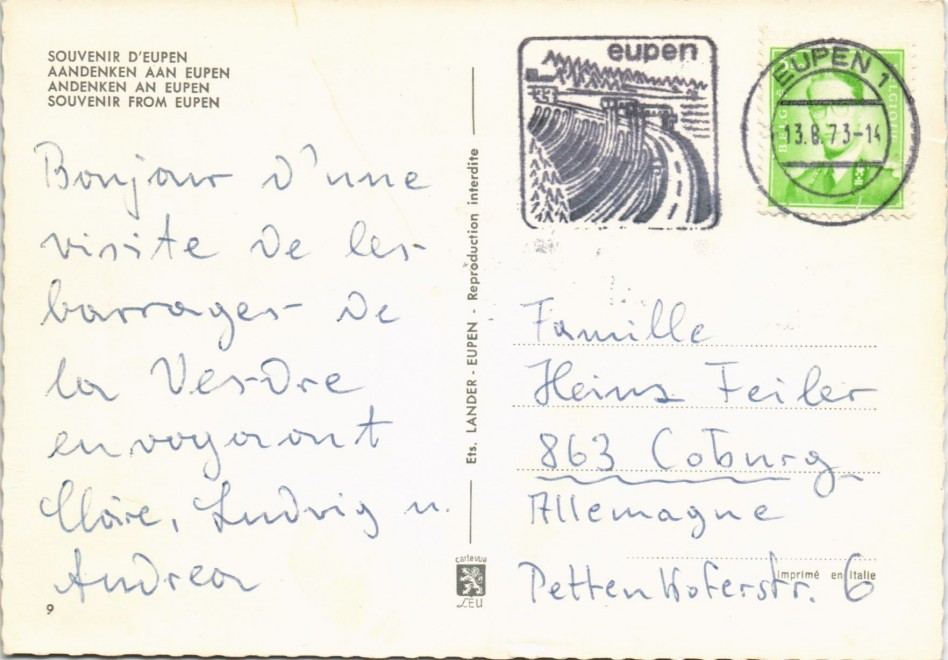 SOUVENIR D'EUPEN
AANDENKEN AAN EUPEN
ANDENKEN AN EUPEN
SOUVENIR FROM EUPEN
Bonjour d'une
visite de les
barrages de
la Vesdre
envoyaont
Claire, Ludwig u.
Andrea
9
Ets. LANDER - EUPEN - Reproduction interdite
cartevue
LEU
eupen
EUPEN 1
13.8.73-14
BELGIE
Famille
Heinz Feiler
863 Coburg
Allemagne
Imprimé en Italie
Pettenkoferstr. 6